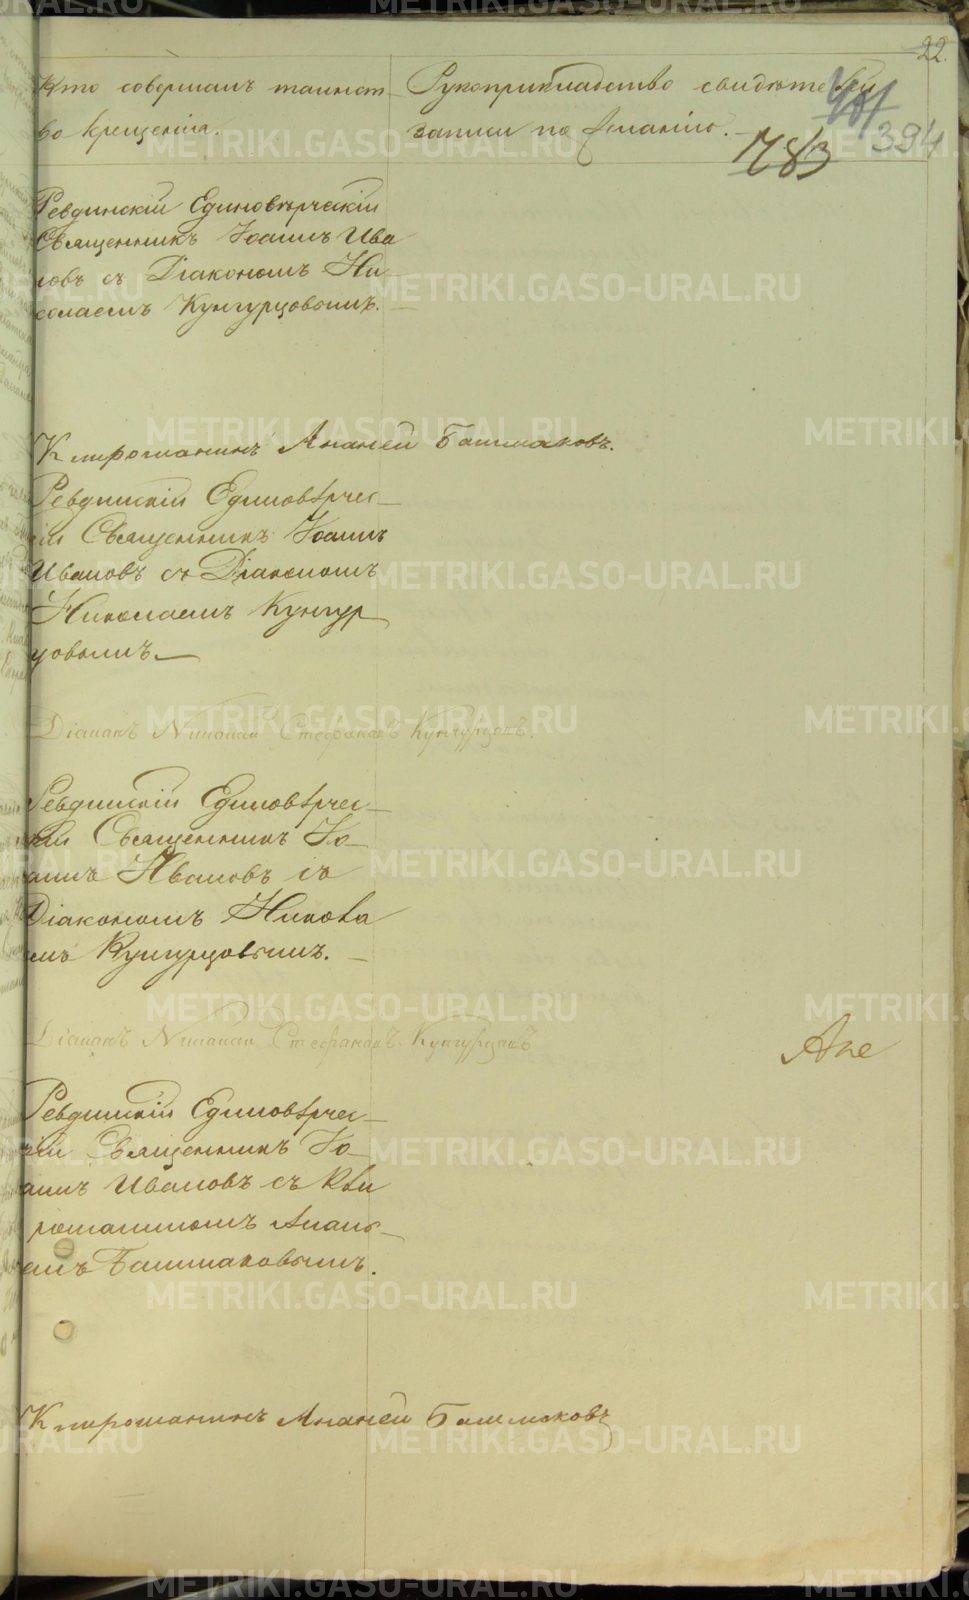 22.
Кто совершалъ таинст-
во крещенія.
Рукоприкладство свидѣтелей
записи по желанію.
394
1783
Ревдинскій Единовѣрческій
Священникъ Іоаннъ Ива
новъ съ Діакономъ Ни-
колаемъ Кунгурцовымъ.
Клирошанинъ Ананей Башмаковъ.
Ревдинскій Единовѣрчес-
кій Священникъ Іоаннъ
Ивановъ съ Діакономъ
Николаемъ Кунгур
цовымъ.
Діаконъ Николай Стефановъ Кунгурцовъ.
Ревдинскій Единовѣрчес-
кій Священникъ Іо-
аннъ Ивановъ съ
Діакономъ Никола
емъ Кунгурцовымъ.
Діаконъ Николай Стефановъ Кунгурцовъ
Ане
Ревдинскій Единовѣрчес-
кій Священникъ Іо-
аннъ Ивановъ съ Кли
рошаниномъ Анань-
емъ Башмаковымъ.
Клирошанинъ Ананей Башмаковъ
METRIKI.GASO-URAL.RU